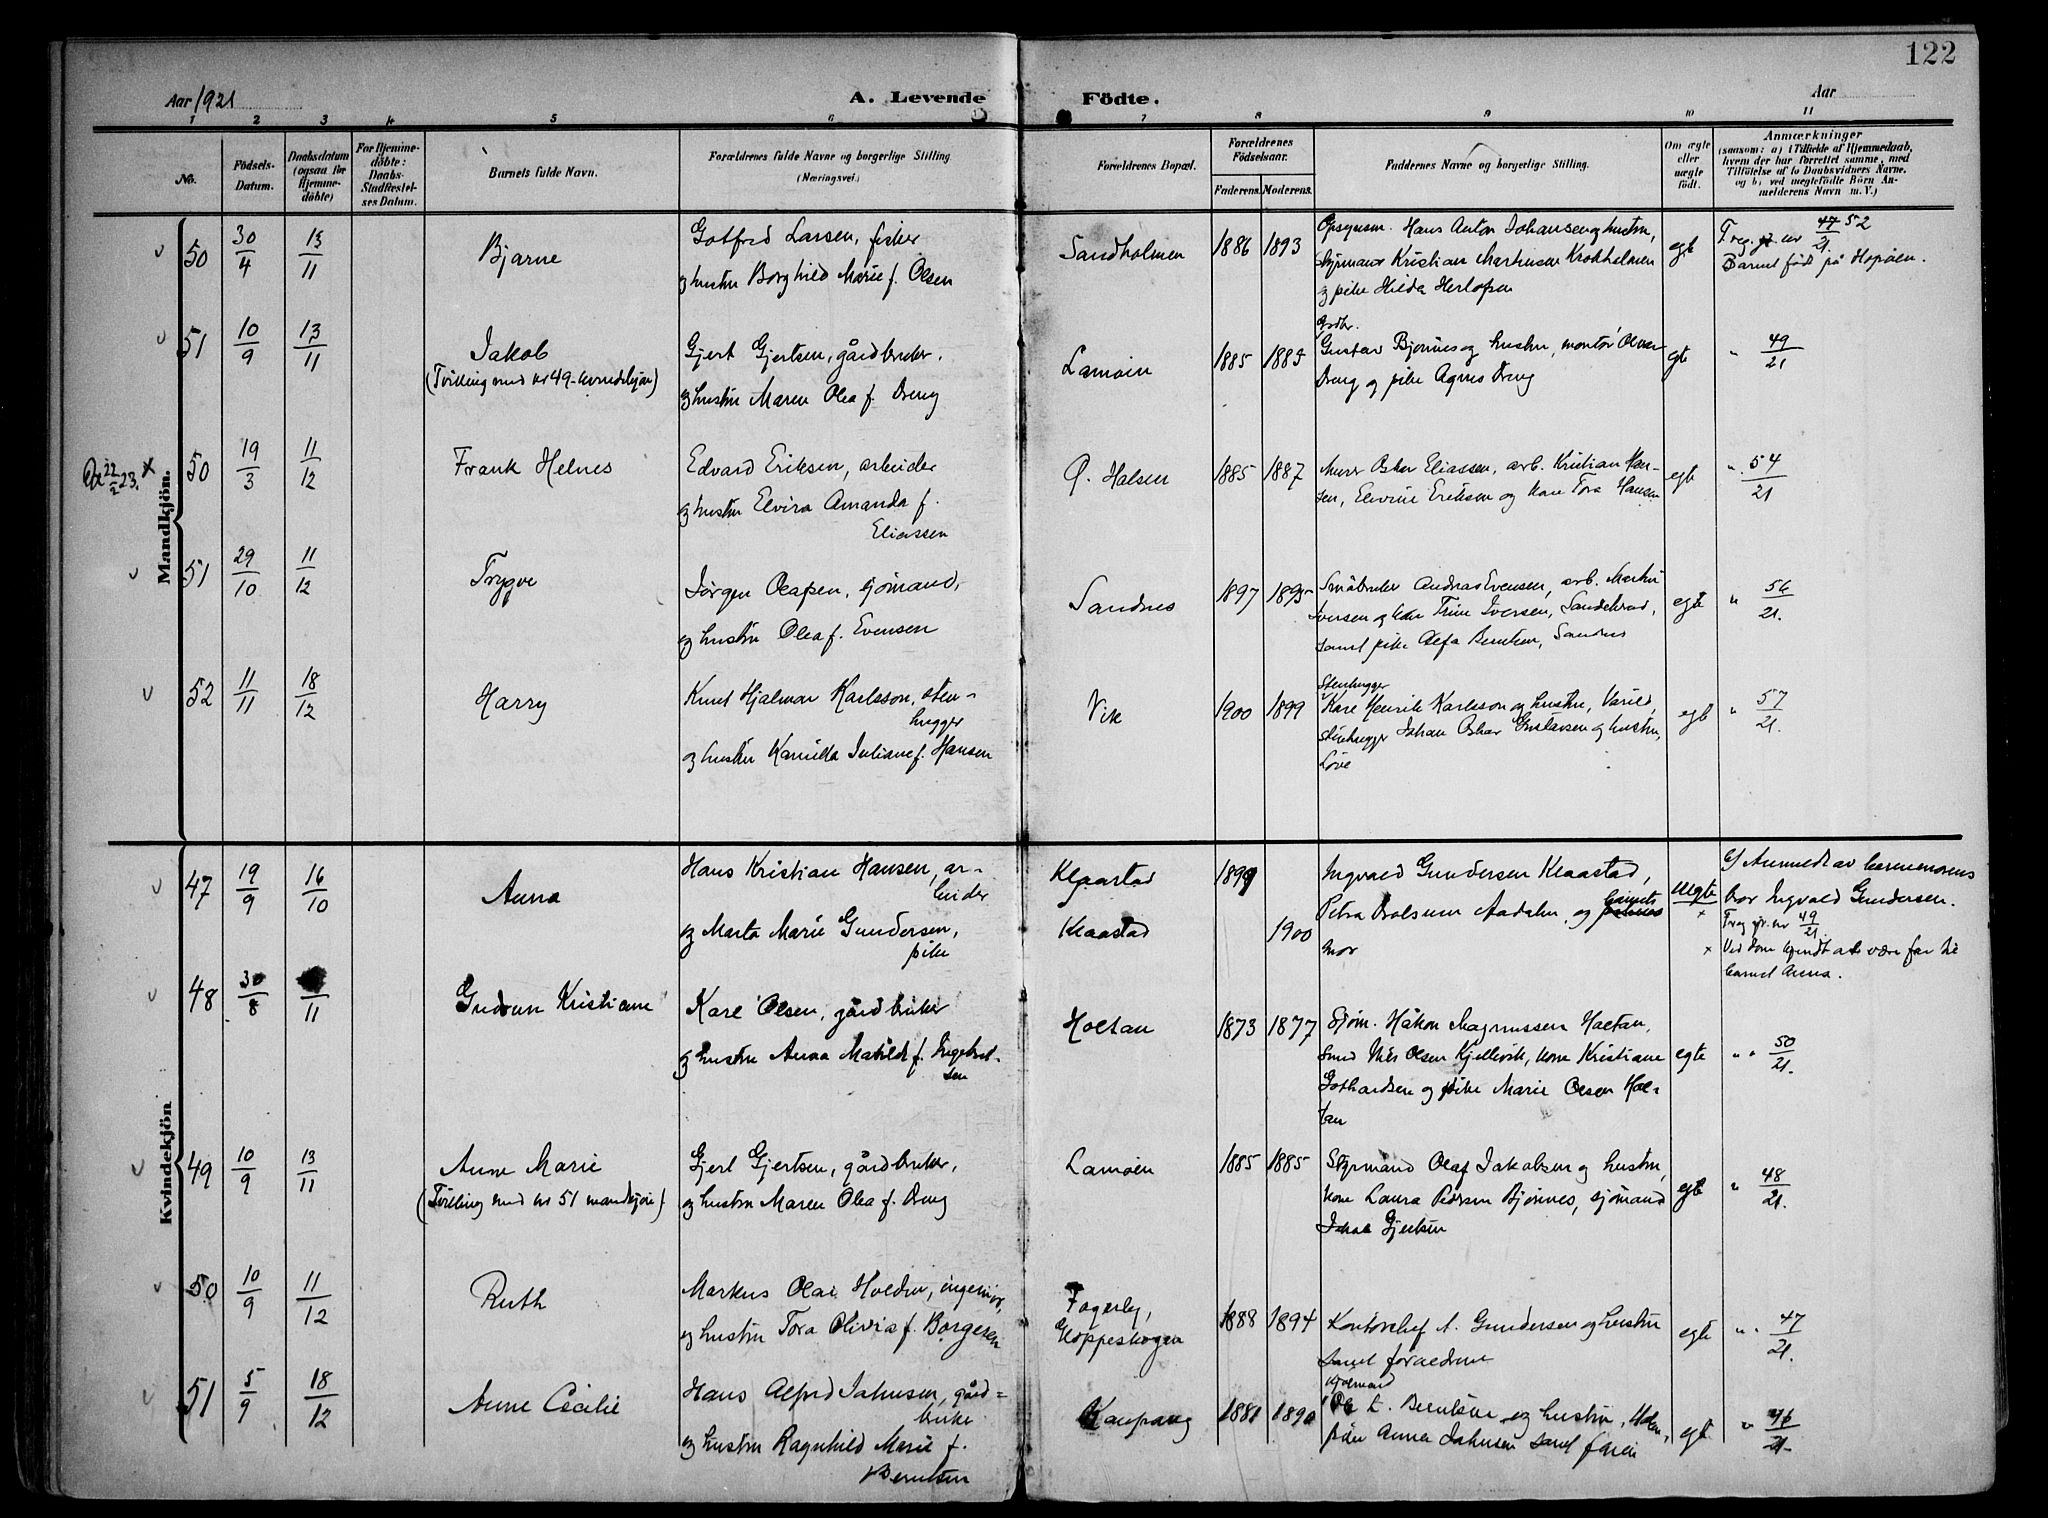 122
Aar 1921
A. Levende Födte.
Aar
1 2 3 4 5 6 7 8 9 10 11
No.
Födsels-
Datum.
Daabsdatum
(ogsaa for
Hjemme-
döbte)
For Hjemme-
döbte:
Daabs-
Stadfæstel-
ses Datum.
Barnets fulde Navn.
Forældrenes fulde Navne og borgerlige Stilling
(Næringsvei.)
Forældrenes Bopæl.
Forældrenes
Födselsaar.
Faderens. Moderens.
Faddernes Navne og borgerlige Stilling.
Om ægte
eller
uægte
født.
Anmærkninger
(saasom: a) i Tilfælde af Hjemmedaab,
hvem der har forrettet samme, med
Tilföielse af to Daabsvidners Navne,
og b) ved uægtefödte Börn An-
melderens Navn m. V.)
Mandkjön.
50 30/4 13/11 Bjarne
Gotfred Larsen, fisker
og hustru Borghild Marie f. Olsen
Sandholmen 1886 1893
Opsynsm. Hans Anton Johansen og hustru,
styrmand Kristian Markussen Krokholmen
og pike Hilda Herlofsen
egt
F. reg. nr 47 52/21.
Barnet født på Hopøen.
51 10/9 13/11 Jakob
(Tvilling med nr 49 - kvindekjøn)
Gjert Gjertsen, gårdbruker.
og hustru Maren Olea f. Dreng
Lamøen 1885 1885
Grdbr.
Gustav Bjønnes og hustru, montør Oluv
Dreng og pike Agnes Dreng
egte
" 49/21
22/2 23. x
50 19/3 11/12 Frank Helnes
Edvard Eriksen, arbeider
og hustru Elvira Amanda f.
Eliassen
Ø. Halsen 1885 1887
Murer Oskar Eliassen, arb. Kristian Han-
sen, Elvine Eriksen og kone Tora Hansen
egte
" 54/21
51 29/10 11/12 Trygve
Jørgen Olafsen, sjømand,
og hustru Olea f. Evensen
Sandnes 1897 1895
Småbruker Andreas Evensen, arb. Martin
Iversen og kone Trine Iversen, Sandekrad,
samt pike Alfa Berntsen, Sandnes
egte
" 56/21.
52 11/11 18/12 Harry
Knut Hjalmar Karlsson, sten-
hugger
og hustru Kamilla Juliane f. Hansen
Vik 1900 1899
Stenhugger
Karl Henrik Karlsson og hustru, Varild,
stenhugger Johan Oskar Gustavsen og hustru,
Løve
egte
" 57/21.
Kvindekjön
47 19/9 16/10 Anna
Hans Kristian Hansen, ar-
beider
og Marta Marie Gundersen,
pike
Klaastad 1899
Klaastad 1900
Ingvald Gundersen Klaastad,
Petra Aadahn, og barnets
mor
uegte
x
Anmeldt av barnemorens
bror Ingvald Gundersen.
F reg pr. nr 49/21.
x Ved dom kjendt at være far til
barnet Anna.
48 30/8 /11 Gudrun Kristiane
Karl Olsen, gårdbruker
og hustru Anna Matilde f. Ingebret-
sen
Holtan 1873 1877
Sjøm. Håkon Magnussen Holtan,
smed Nils Olsen Kjellevik, kone Kristiane
Gothardsen og pike Marie Olsen Hol-
tan
egte
" " 50/21.
49 10/9 13/11 Anne Marie
(Tvilling med nr 51 mandkjøn).
Gjert Gjertsen, gårdbruker,
og hustru Maren Olea f. Dreng
Lamøen 1885 1885
Styrmand Olaf Jakobsen og hustru,
kone Laura Pedersen Bjønnes, sjømand
Jakob Gjertsen
egte
" 48/21.
50 10/9 11/12 Ruth
Markus Olai Holden, ingeniør,
og hustru Tora Olivia f. Borgesen
Fagerly,
Hoppeskogen
1888 1894
Kontorchef A. Gundersen og hustru
samt forældrene
egte
" " 47/21.
51 5/9 18/12 Anne Cecilie
Hans Alfred Jahnsen, gård=
bruker
og hustru Ragnhild Marie f.
Berntsen
Kaupang 1881 1890
sjømand
Ole L. Berntsen og hustru,
piken Anna Jahnsen samt faren
egt
" 46/21